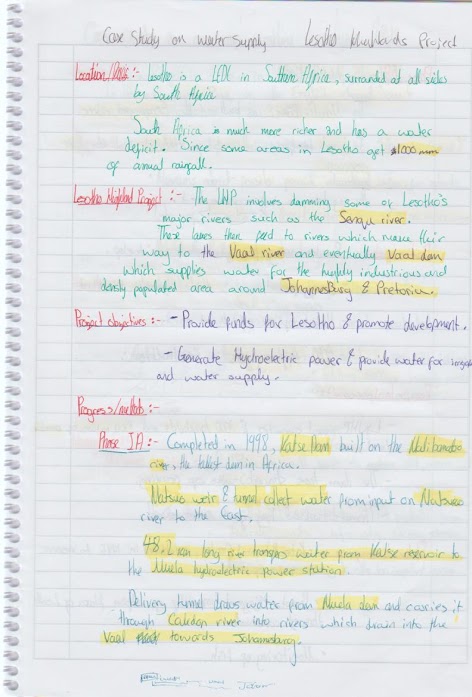 Case Study on water supply Lesotho Highlands Project
Location/ :- Lesotho is a LEDC in Southern Africa, surrounded at all sides
by South Africa
South Africa is much more richer and has a water
deficit. Since some areas in Lesotho get 1000 mm
of annual rainfall.
Lesotho Highland Project :- The LHP involves damming some of Lesotho's
major rivers such as the Senqu river.
These then feed to rivers which make their
way to the Vaal river and eventually Vaal dam
which supplies water for the highly industrious and
densly populated area around Johannesburg & Pretoria.
Project objectives :- - Provide funds for Lesotho & promote development.
- Generate Hydroelectric power & provide water for
and water supply.
Progress/methods :-
Phase 1A :- Completed in 1998, Katse Dam built on the
river, the tallest dam in Africa.
weir & tunnel collect water from input on
river to the East.
48.2 km long transfers water from Katse reservoir to
the Muela hydroelectric power station.
Delivery tunnel draws water from Muela dam and carries it
through Caledon river into rivers which drain into the
Vaal towards Johannesburg.